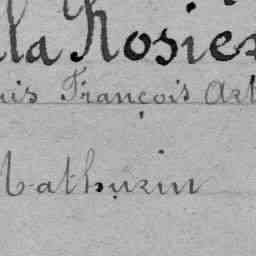 la Rosiè
François Art
Mathurin